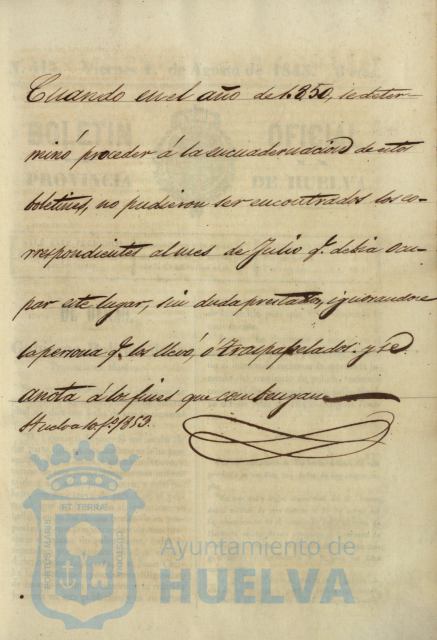 Cuando en el año de 1.850, se deter-
minó proceder á la encuadernacion de estos
boletines, no pudieron ser encontrados los co-
rrespondientes al mes de Julio q.e debia ocu-
par este lugar, sin duda prestados, ignorandose
la persona q.e los llevó, ó traspapelados. y se
anota á los fines que combengan
Huelva
1853.
BOLETIN OFICIAL
PROVINCIA DE HUELVA
ET TERRÆ
PORTUS MARIS
CUSTODIA
Ayuntamiento de
HUELVA